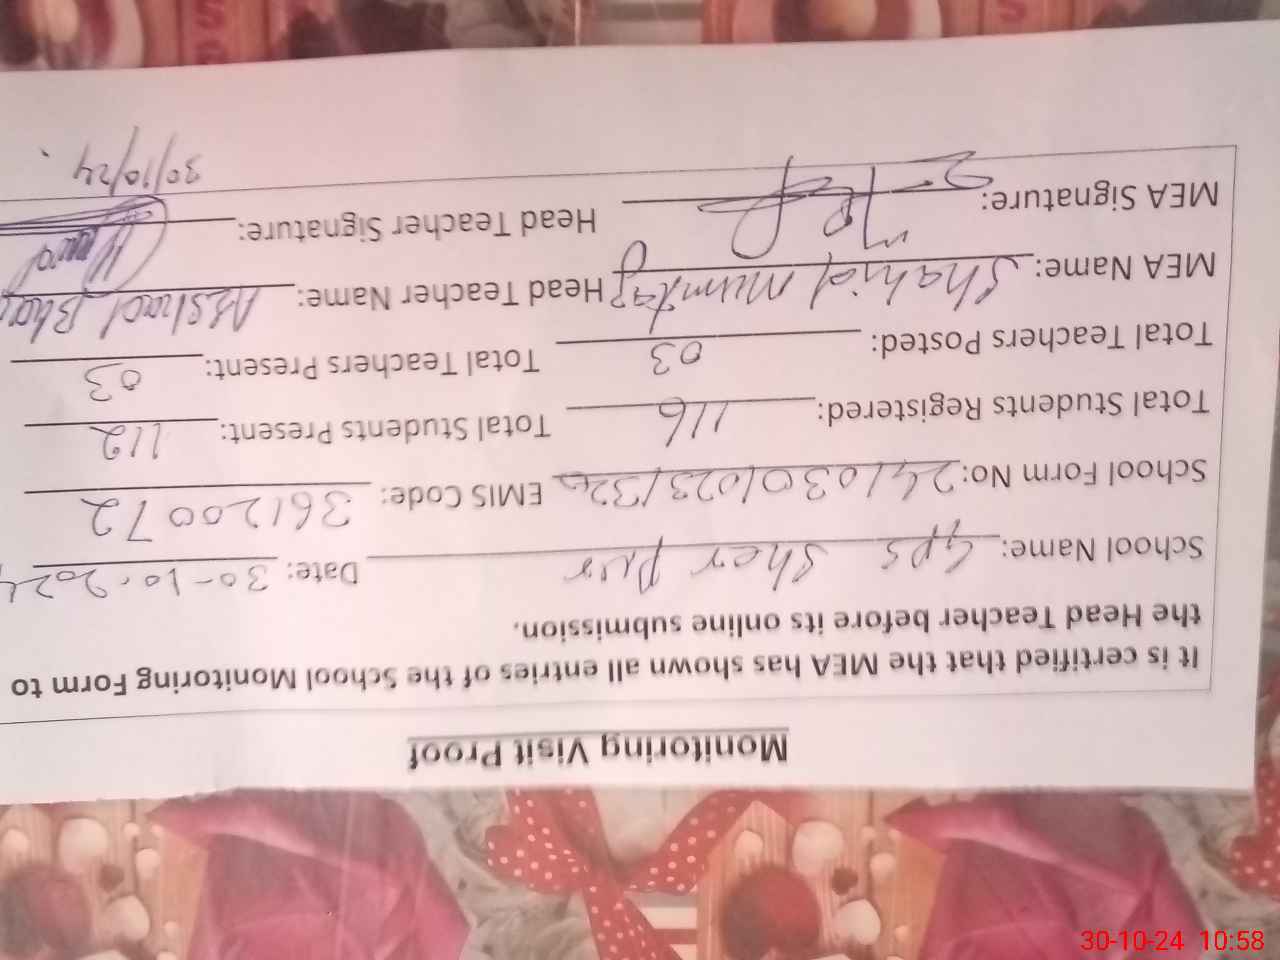 Monitoring Visit Proof
It is certified that the MEA has shown all entries of the School Monitoring Form to
the Head Teacher before its online submission.
School Name: GPS Sher pur Date: 30-10-2024
School Form No: EMIS Code: 36120072
Total Students Registered: 116 Total Students Present: 112
Total Teachers Posted: 03 Total Teachers Present: 03
MEA Name: Shahid Mumtaz Head Teacher Name:
MEA Signature: Head Teacher Signature:
30/10/24
30-10-24 10:58